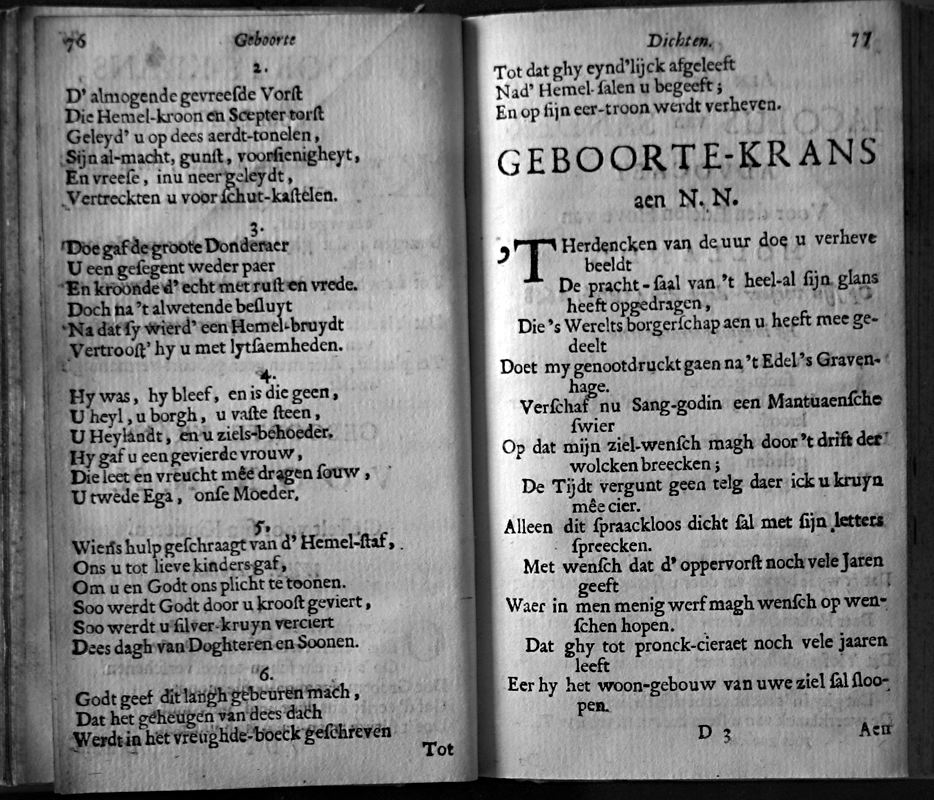 76 Geboorte
2.
D' almogende gevreesde Vorst
Die Hemel-kroon en Scepter torst
Geleyd' u op dees aerdt-tonelen,
Sijn al-macht, gunst, voorsienigheyt,
En vreese, inu neer geleydt,
Vertreckten u voor schut-kastelen.
3.
Doe gaf de groote Donderaer
U een gesegent weder paer
En kroonde d' echt met rust en vrede.
Doch na 't alwetende besluyt
Na dat sy wierd' een Hemel-bruydt
Vertroost' hy u met lytsaemheden.
4.
Hy was, hy bleef, en is die geen,
U heyl, u borgh, u vaste steen,
U Heylandt, en u ziels-behoeder.
Hy gaf u een gevierde vrouw,
Die leet en vreucht mêe dragen souw,
U twede Ega, onse Moeder.
5.
Wiens hulp geschraagt van d' Hemel-staf,
Ons u tot lieve kinders gaf,
Om u en Godt ons plicht te toonen.
Soo werdt Godt door u kroost geviert,
Soo werdt u silver-kruyn verciert
Dees dagh van Doghteren en Soonen.
6.
Godt geef dit langh gebeuren mach,
Dat het geheugen van dees dach
Werdt in het vreughde-boeck geschreven
Tot
Dichten. 77
Tot dat ghy eynd'lijck afgeleeft
Nad' Hemel salen u begeeft;
En op sijn eer-troon werdt verheven.
GEBOORTE-KRANS
aen N. N.
'T Herdencken van de uur doe u verheve
beeldt
De pracht-saal van 't heel-al sijn glans
heeft opgedragen,
Die 's Werelts borgerschap aen u heeft mee ge-
deelt
Doet my genootdruckt gaen na 't Edel 's Graven-
hage.
Verschaf nu Sang-godin een Mantuaensche
swier
Op dat mijn ziel-wensch magh door 't drift der
wolcken breecken;
De Tijdt vergunt geen telg daer ick u kruyn
mêe cier.
Alleen dit spraackloos dicht sal met sijn letters
spreecken.
Met wensch dat d' oppervorst noch vele Jaren
geeft
Waer in men menig werf magh wensch op wen-
schen hopen.
Dat ghy tot pronck-cieraet noch vele jaaren
leeft
Eer hy het woon-gebouw van uwe ziel sal sloo-
pen.
D 3 Aen